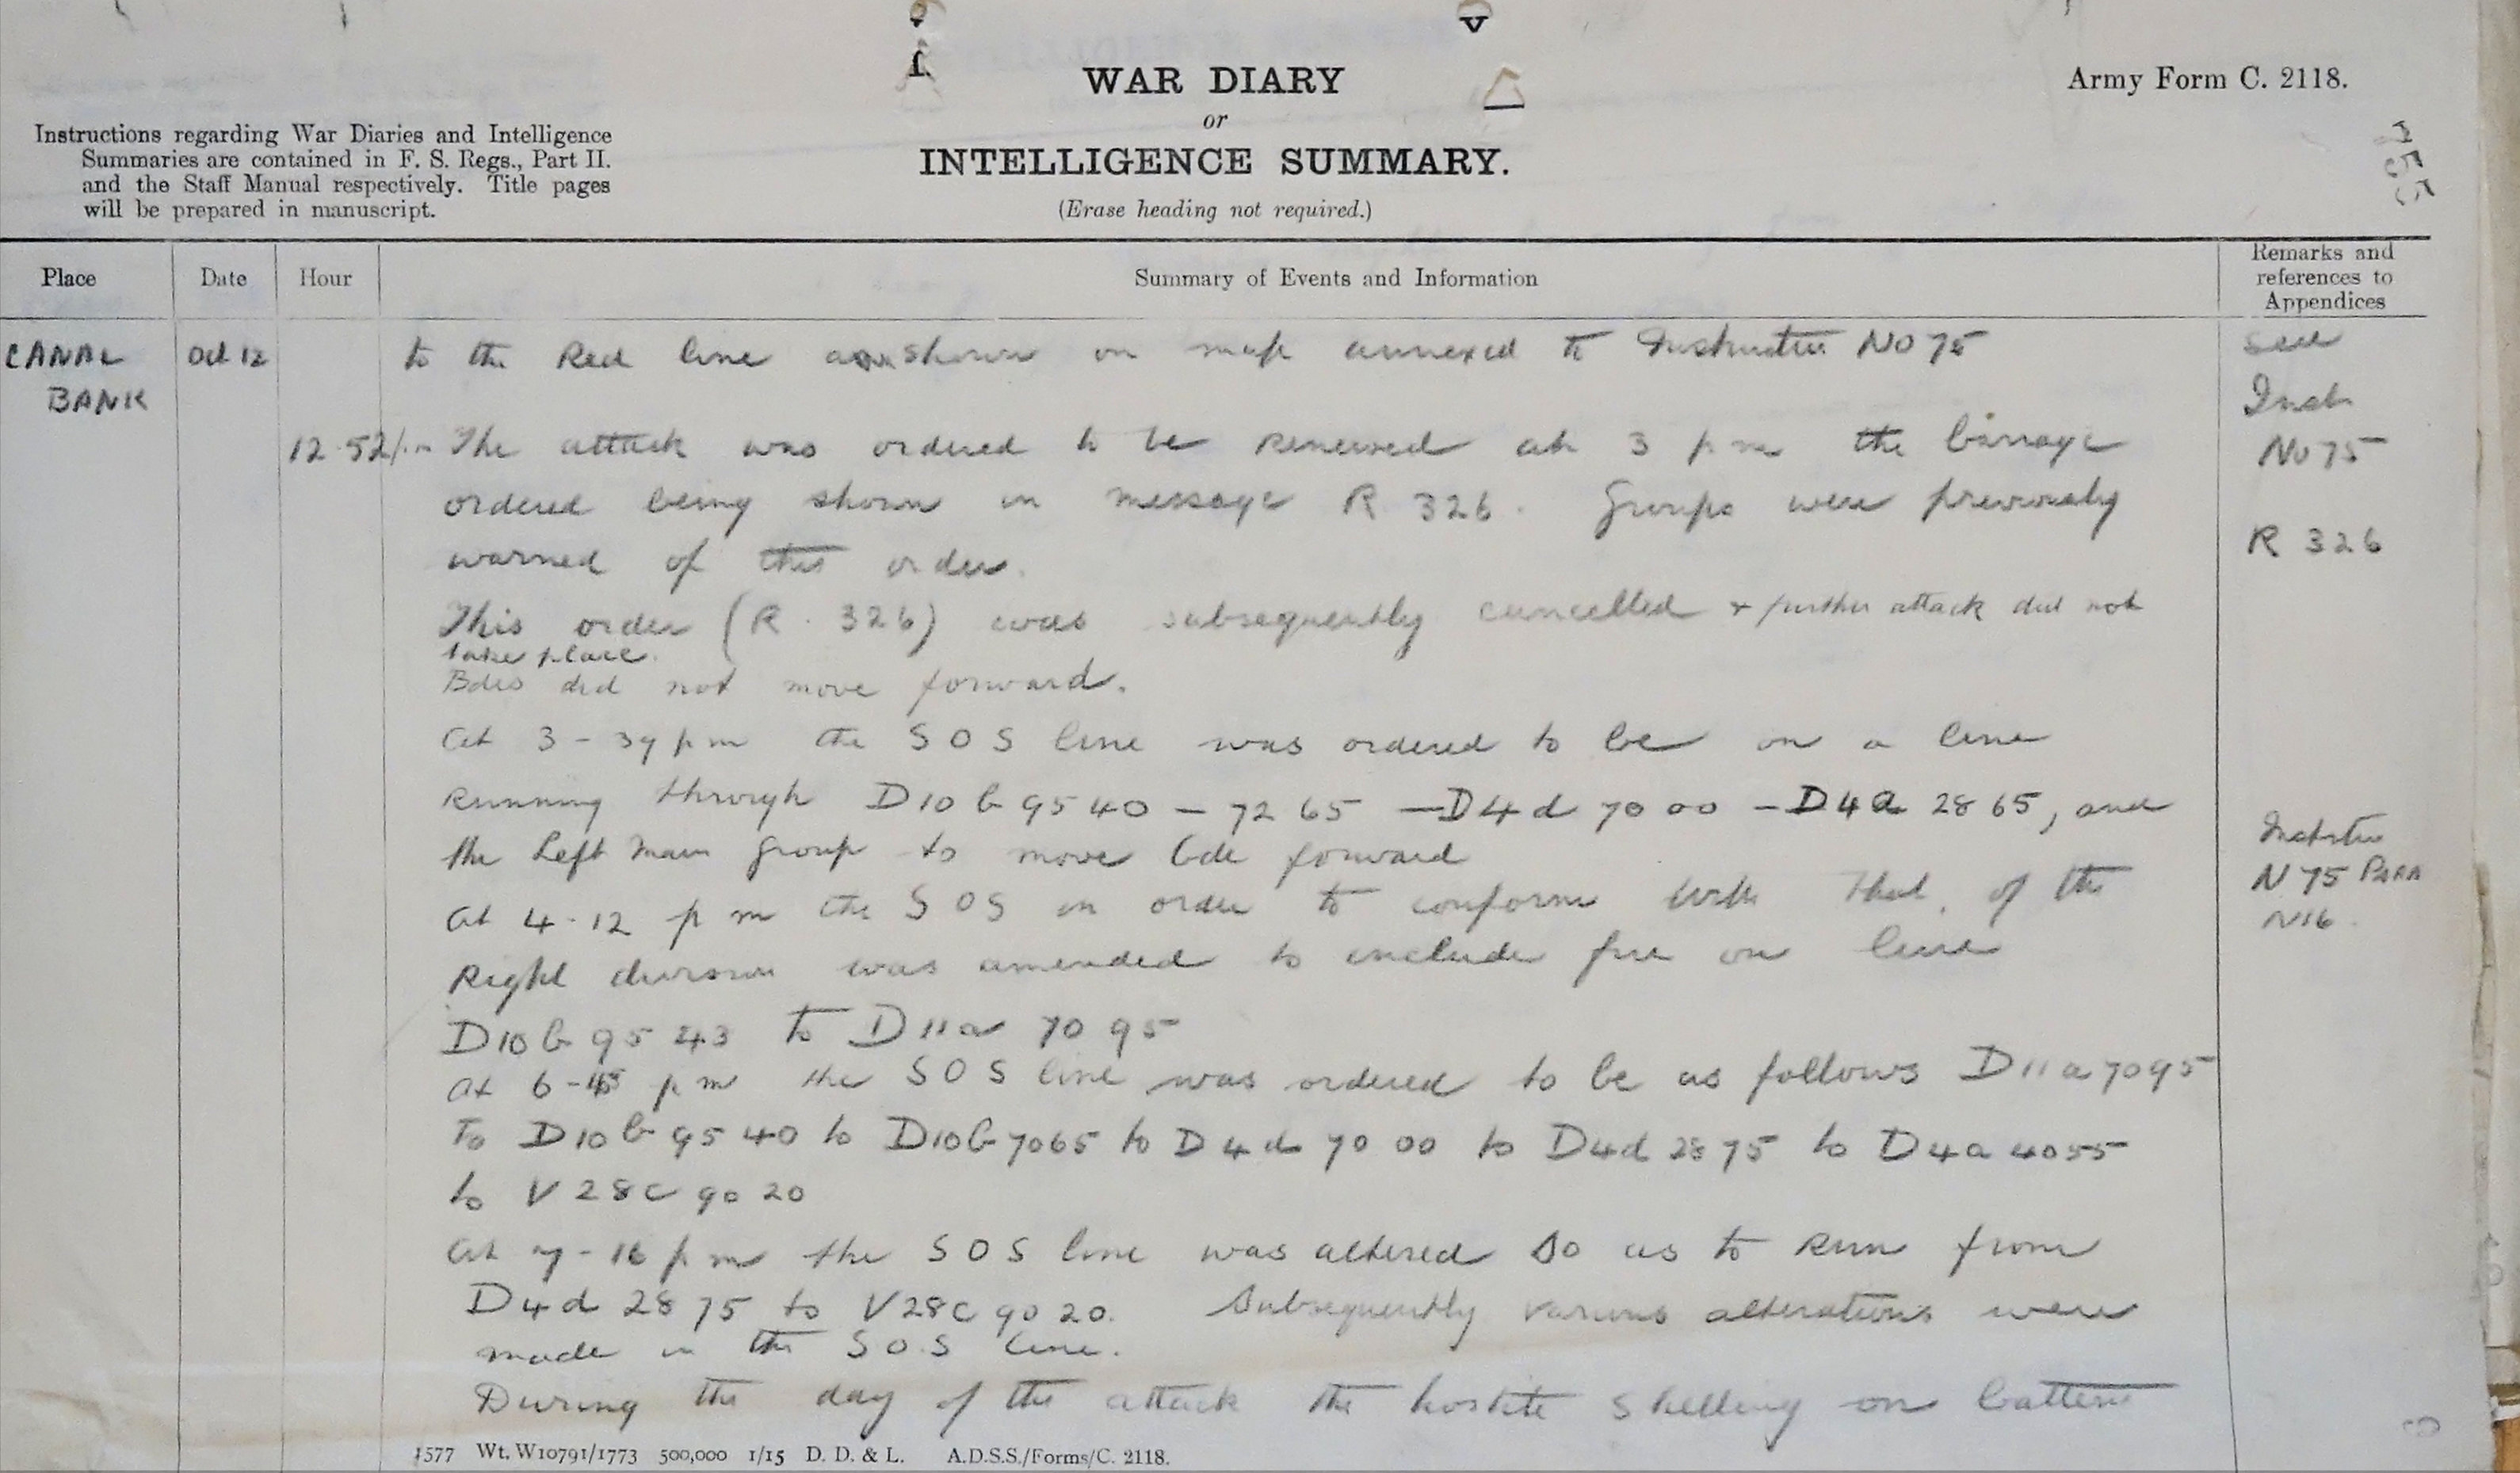 WAR DIARY
or
INTELLIGENCE SUMMARY.
(Erase heading not required.)
Army Form C. 2118.
Instructions regarding War Diaries and Intelligence
Summaries are contained in F. S. Regs., Part II.
and the Staff Manual respectively. Title pages
will be prepared in manuscript.
Place Date Hour Summary of Events and Information Remarks and references to Appendices
CANAL BANK Oct 12 to the Red line as shown on map annexed to Instruction No 75 see
Inst
No 75
12.52 pm The attack was ordered to be renewed at 3 pm the barrage
ordered being shown in message R 326. Groups were previously
warned of this order. R 326
This order (R. 326) was subsequently cancelled & further attack did not
take place.
Bdes did not move forward.
At 3-39 pm the SOS line was ordered to be on a line
running through D10b 95 40 - 72 65 - D4d 70 00 - D4a 28 65, and
the Left Main Group to move bde forward
N 75 PARA
N16.
At 4-12 pm the SOS in order to conform with that of the
Right division was amended to include fire on line
D10b 95 43 to D11a 70 95
At 6-45 pm the SOS line was ordered to be as follows D11a 70 95
To D10b 95 40 to D10b 70 65 to D4d 70 00 to D4d 28 75 to D4a 40 55
to V28c 90 20
At 7-16 pm the SOS line was altered so as to run from
D4d 28 75 to V28c 90 20. Subsequently various alterations were
made in the S.O.S line.
During the day of the attack the hostile shelling on batteries
1577 Wt. W10791/1773 500,000 1/15 D. D. & L. A.D.S.S./Forms/C. 2118.